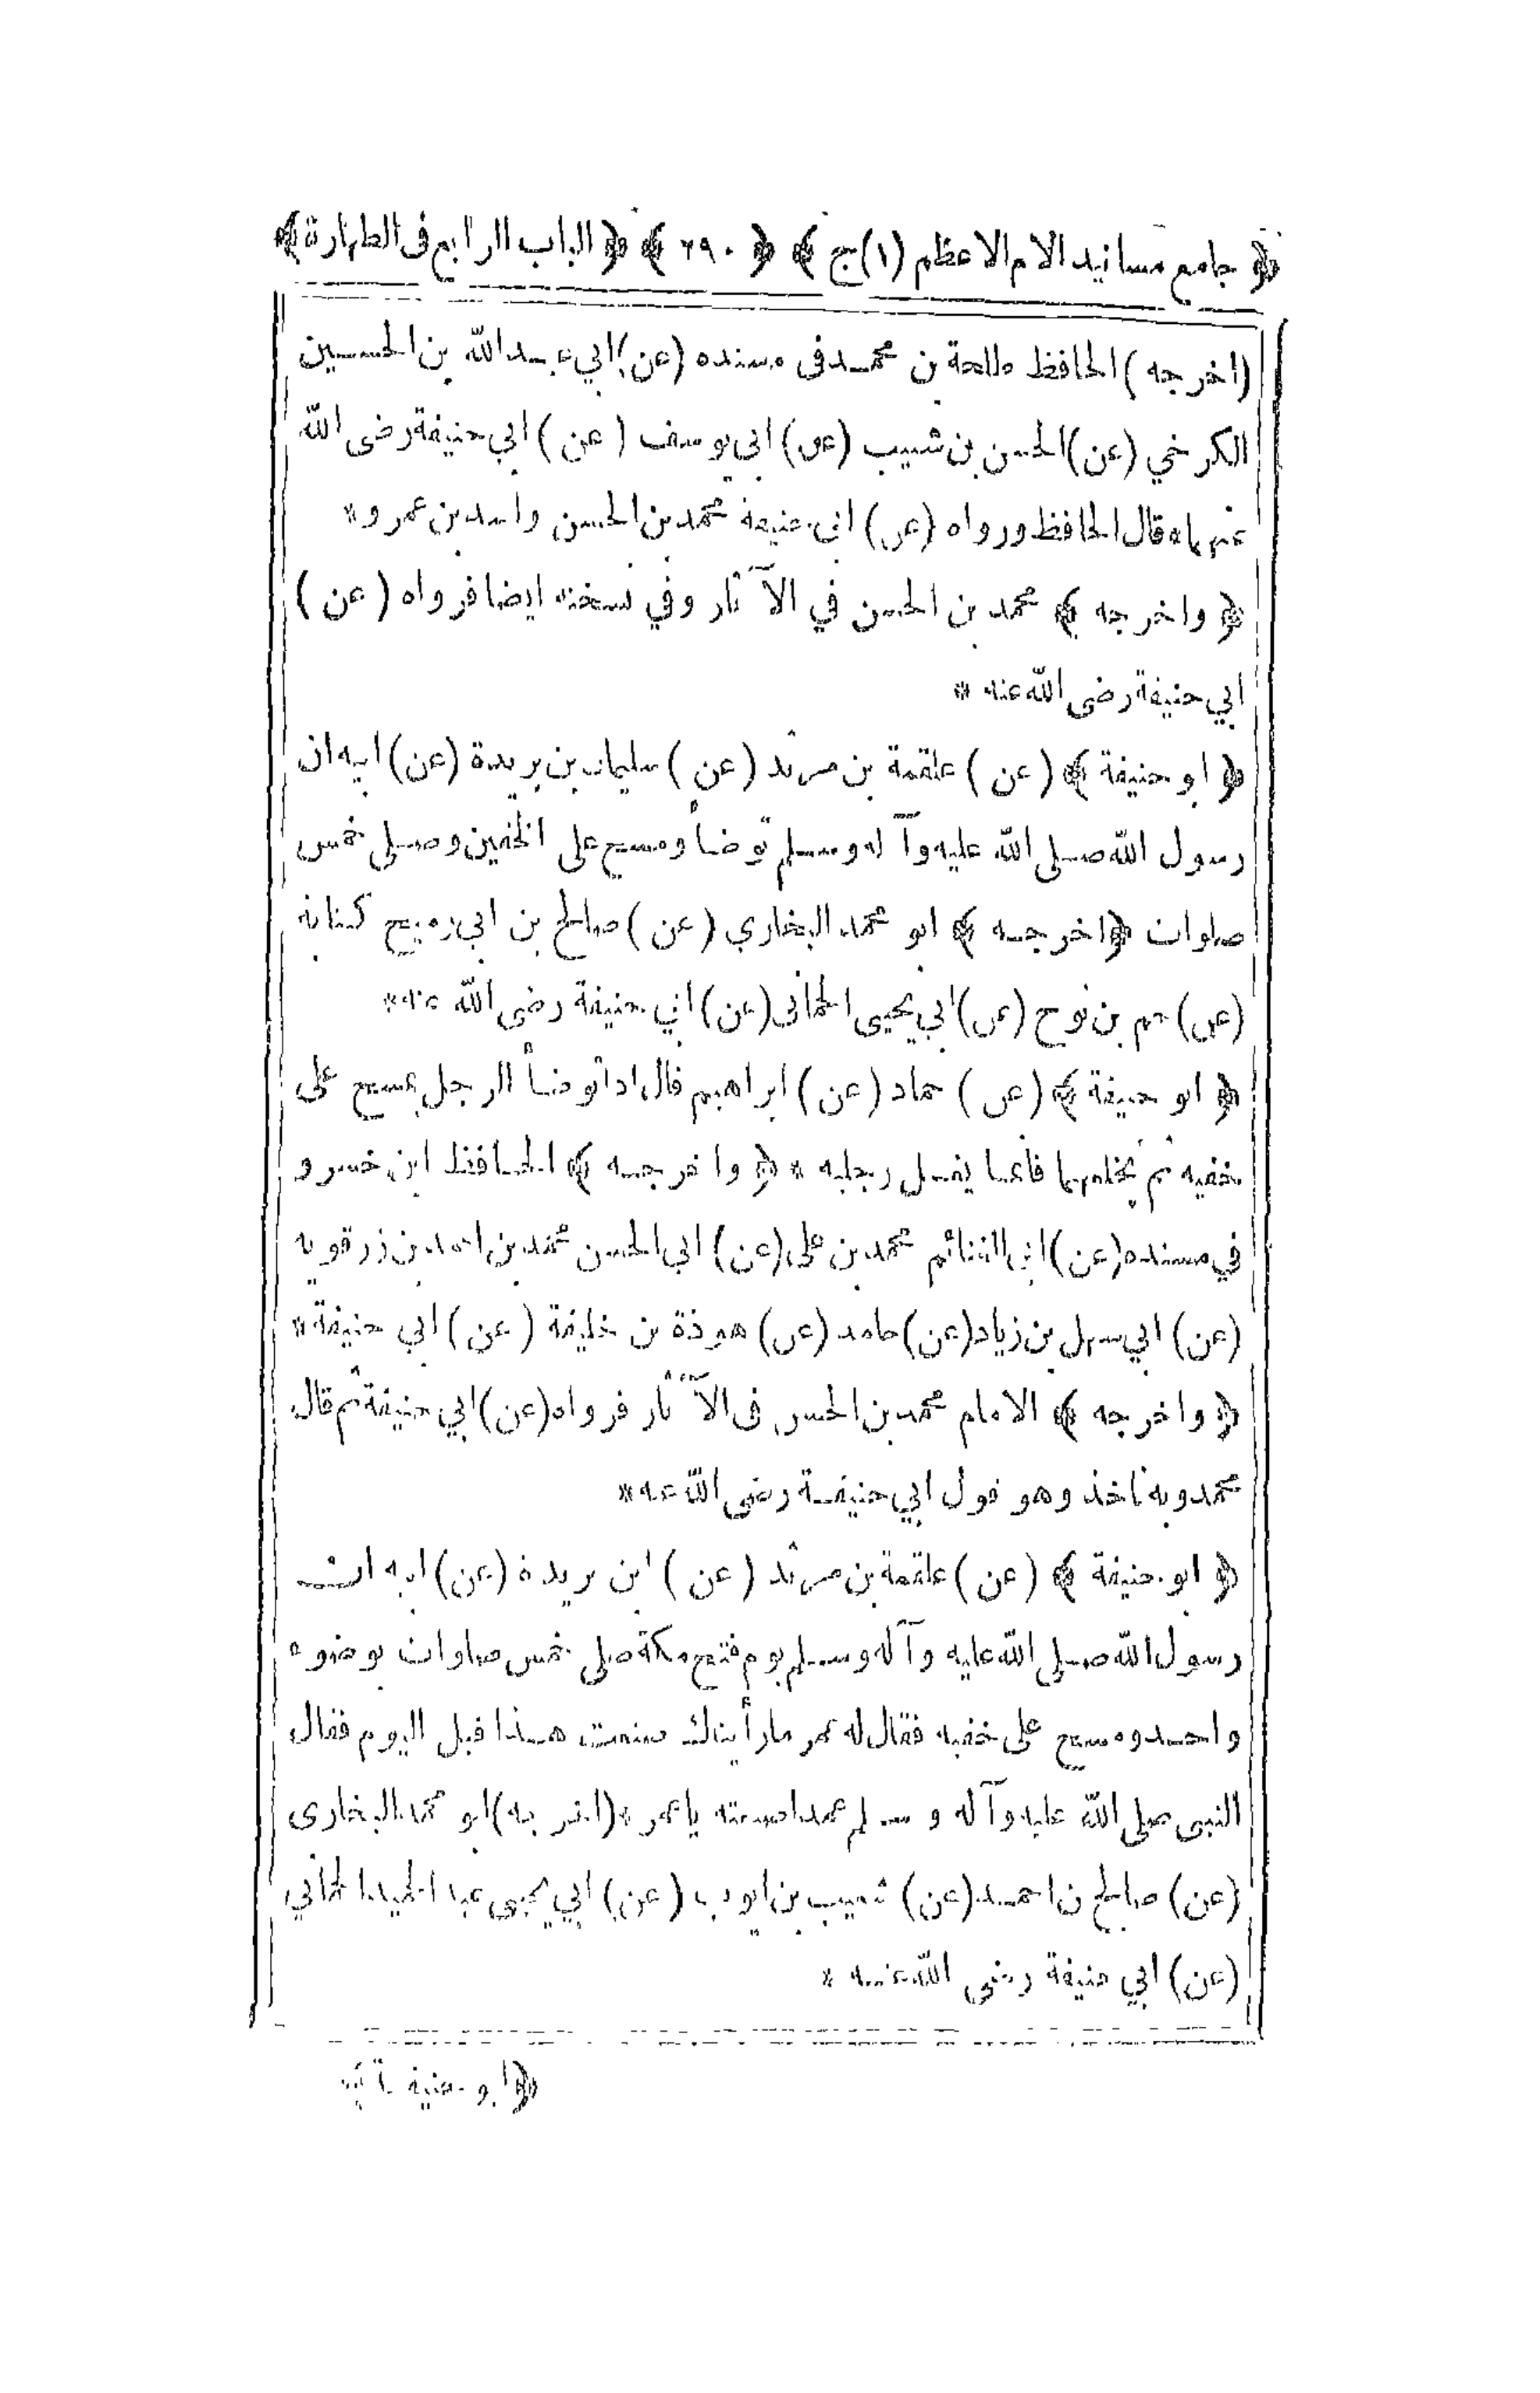 ﴿ جامع مسانيد الامام الاعظم (١) ج ﴾ ﴿ ٢٩٠ ﴾ ﴿ الباب الرابع فى الطهارة ﴾
(اخرجه) الحافظ طلحة بن محمد فى مسنده (عن) ابي عبد الله بن الحسين
الكرخي (عن) الحسن بن شبيب (عن) ابى يوسف (عن) ابي حنيفة رضى الله
عنهما * قال الحافظ ورواه (عن) ابى حنيفة محمد بن الحسن واسد بن عمرو *
﴿ واخرجه ﴾ محمد بن الحسن في الآثار وفي نسخته ايضا فرواه (عن)
ابي حنيفة رضى الله عنه *
﴿ ابو حنيفة ﴾ (عن) علقمة بن مرثد (عن) سليمان بن بريدة (عن) ابيه ان
رسول الله صلى الله عليه وآله وسلم توضأ ومسح على الخفين وصلى خمس
صلوات ﴿ اخرجه ﴾ ابو محمد البخاري (عن) صالح بن ابى رميح كتابة
(عن) بن نوح (عن) ابي يحيى الحمانى (عن) ابي حنيفة رضى الله عنه *
﴿ ابو حنيفة ﴾ (عن) حماد (عن) ابراهيم قال اذا توضأ الرجل ومسح على
خفيه ثم يخلعهما فانما يغسل رجليه * ﴿ واخرجه ﴾ الحافظ ابن خسرو
في مسنده (عن) ابى الغنائم محمد بن على (عن) ابى الحسن محمد بن احمد بن زرقويه
(عن) ابي سهل بن زياد (عن) حامد (عن) هوذة بن خليفة (عن) ابي حنيفة *
﴿ واخرجه ﴾ الامام محمد بن الحسن فى الآثار فرواه (عن) ابي حنيفة ثم قال
محمد وبه ناخذ وهو قول ابي حنيفة رضى الله عنه *
﴿ ابو حنيفة ﴾ (عن) علقمة بن مرثد (عن) ابن بريدة (عن) ابيه ان
رسول الله صلى الله عليه وآله وسلم يوم فتح مكة صلى خمس صلوات بوضوء
واحد ومسح على خفيه فقال له عمر ما رأيناك صنعت هذا قبل اليوم فقال
النبى صلى الله عليه وآله وسلم عمدا صنعته يا عمر * (اخرجه) ابو محمد البخارى
(عن) صالح بن احمد (عن) شعيب بن ايوب (عن) ابي يحيى عبد الحميد الحماني
(عن) ابي حنيفة رضى الله عنه *
﴿ ابو حنيفة ﴾